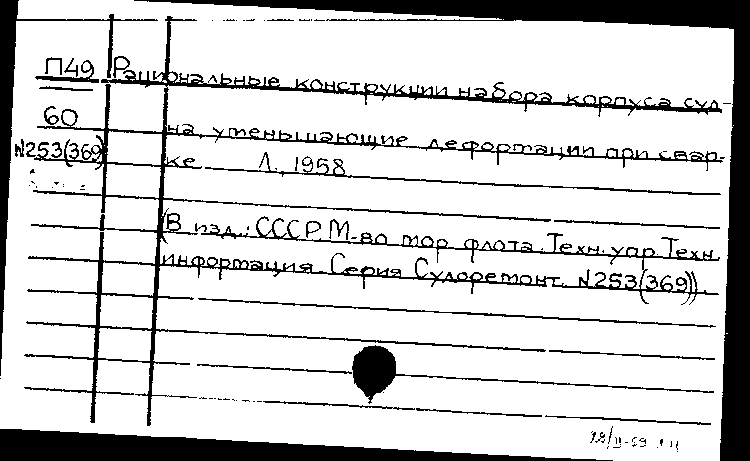 П49 Рациональные конструкции набора корпуса суд-
60 на, уменьшающие деформации при свар-
N253(369) ке Л., 1958
(В изд.: СССР. М-во мор флота. Техн. упр. Техн.
информация. Серия Судоремонт. N253(369)).